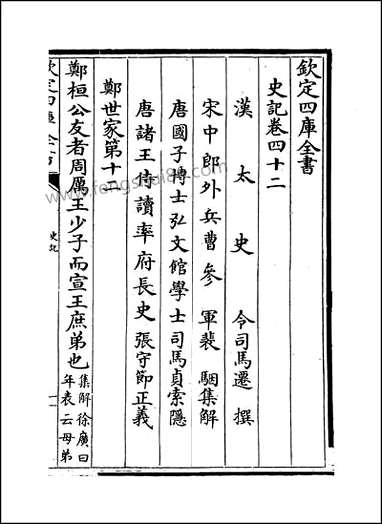 欽定四庫全書
史記卷四十二
漢太史令司馬遷撰
宋中郎外兵曹參軍裴駰集解
唐國子博士弘文館學士司馬貞索隱
唐諸王侍讀率府長史張守節正義
鄭世家第十
鄭桓公友者周厲王少子而宣王庶弟也集解徐廣曰
年表云母弟
欽定四庫全書
史記